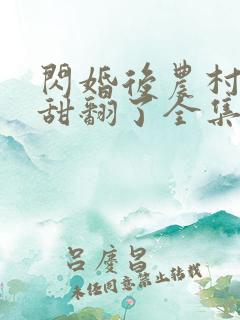 閃婚後農村
甜翻了全集
呂慶昌
未経同意禁止轉載